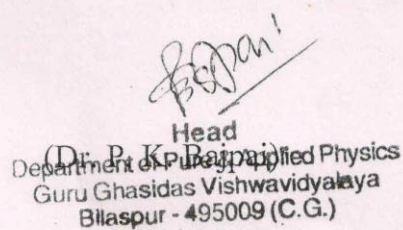 Head
(Dr. P. K. Bajpai)
Department of Pure & Applied Physics
Guru Ghasidas Vishwavidyalaya
Bilaspur - 495009 (C.G.)